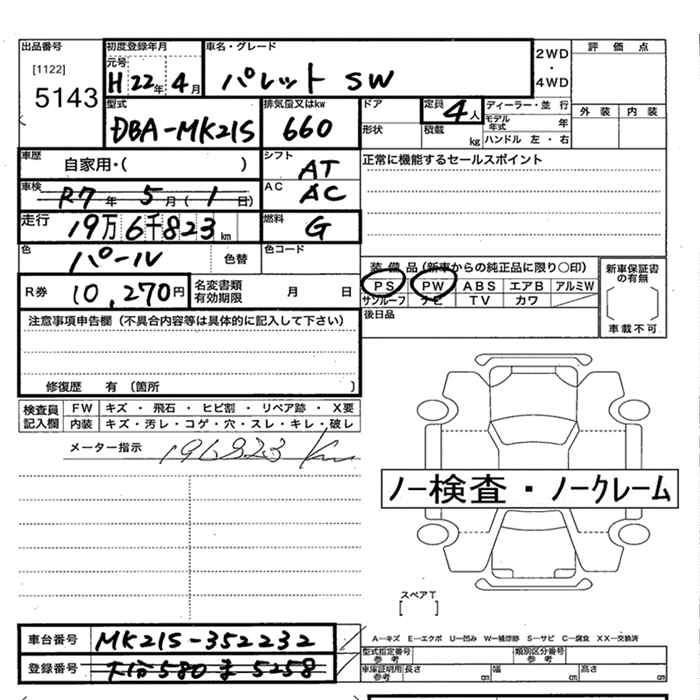 出品番号 初度登録年月 車名・グレード 2WD・4WD 評価点
[1122] 元号
5143 H 22年 4月 パレット SW
型式 排気量又はkw ドア 定員 4人 ディーラー・並行 外装 内装
DBA-MK21S 660 形状 積載 kg モデル年式 年
ハンドル 左・右
車歴 自家用・( ) シフト AT 正常に機能するセールスポイント
車検 R7年 5月(1日) AC AC
走行 19万6千823km 燃料 G
色 パール 色替 色コード
装備品(新車からの純正品に限り○印) 新車保証書の有無
R券 10,270円 名変書類有効期限 月 日 PS PW ABS エアB アルミW
サンルーフ ナビ TV カワ 車載不可
注意事項申告欄(不具合内容等は具体的に記入して下さい) 後日品
修復歴 有〔箇所 〕
検査員記入欄 FW キズ・飛石・ヒビ割・リペア跡・X要
内装 キズ・汚レ・コゲ・穴・スレ・キレ・破レ
メーター指示 196823 Km
ノー検査・ノークレーム
スペアT
[ ]
車台番号 MK21S-352232 A―キズ E―エクボ U―凹み W―補修跡 S―サビ C―腐食 XX―交換済
型式指定番号 参考 類別区分番号 参考
登録番号 580 5258 車庫証明用 参考 長さ cm 幅 cm 高さ cm